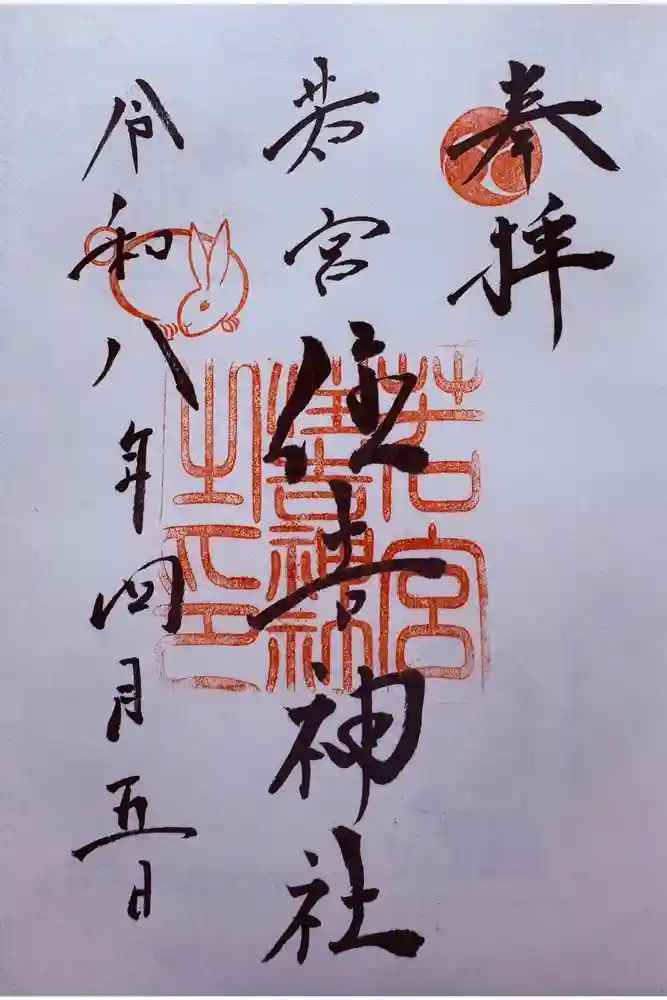 奉拝
若宮住吉神社
令和八年四月五日
若宮
住吉神社
之印